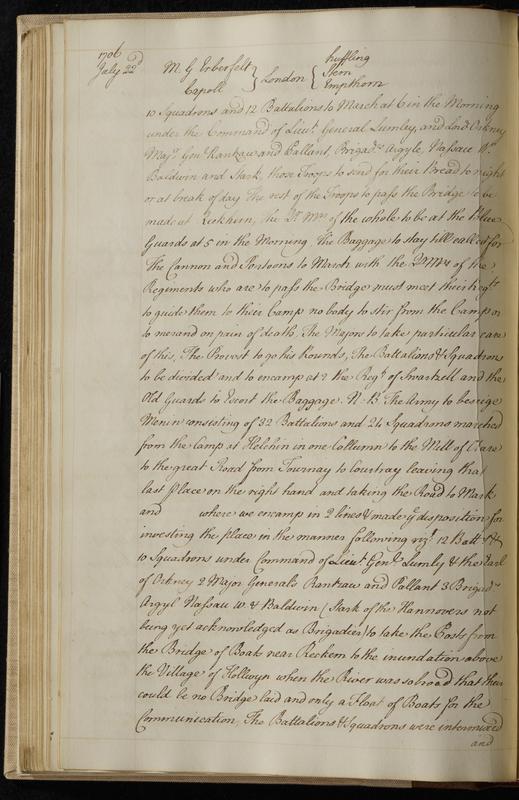 1706
July 22d M. G Erberfelt } London { huffling
Capoll Stern
Empthorn
10 Squadrons and 12 Battalions to March at 6 in the Morning
under the Command of Lieut. General Lumley, and Lord Orkney
Majr. Genl. Rankau and Pallant, Brigadrs. Argyle, Nassau Wm
Baldwin and Stark, those Troops to send for their Bread to night
or at break of day The rest of the Troops to pass the Bridge to be
made at the Qr. Mrs of the whole to be at the Blue
Guards at 5 in the Morning. The Baggage to stay till called for
The Cannon and Pontoons to March with the Qr Mrs of the
Regiments who are to pass the Bridge must meet their Regts
to guide them to their Camp no body to stir from the Camp or
to on pain of death, The Majors to take particular care
of this, The Provost to go his Rounds, The Battalions & Squadrons
to be divided and to encamp at ? the Regt. of and the
Old Guards to Escort the Baggage. N. B. The Army to besiege
Menin consisting of 32 Battalions and 24 Squadrons marched
from the Camp at Helchin in one Collumn to the Mill of
to the great Road from Tournay to Courtray leaving that
last place on the right hand and taking the Road to Mark
and where we encamp in 2 lines & made ye disposition for
investing the place in the manner following vizt. 12 Battns &
10 Squadrons under Command of Lieut. Genl. Lumly & the Earl
of Orkney 2 Major Generals Rantzau and Pallant 3 Brigadrs
Argyl Nassau W. & Baldwin (Stark of the Hannovers not
being yet acknowledged as Brigadier) to take the Posts from
the Bridge of Boats near Reckem to the inundation above
the Village of Hollwyn when the River was so broad that there
could be no Bridge laid and only a Float of Boats for the
Communication, The Battalions & Squadrons were intermixed
and